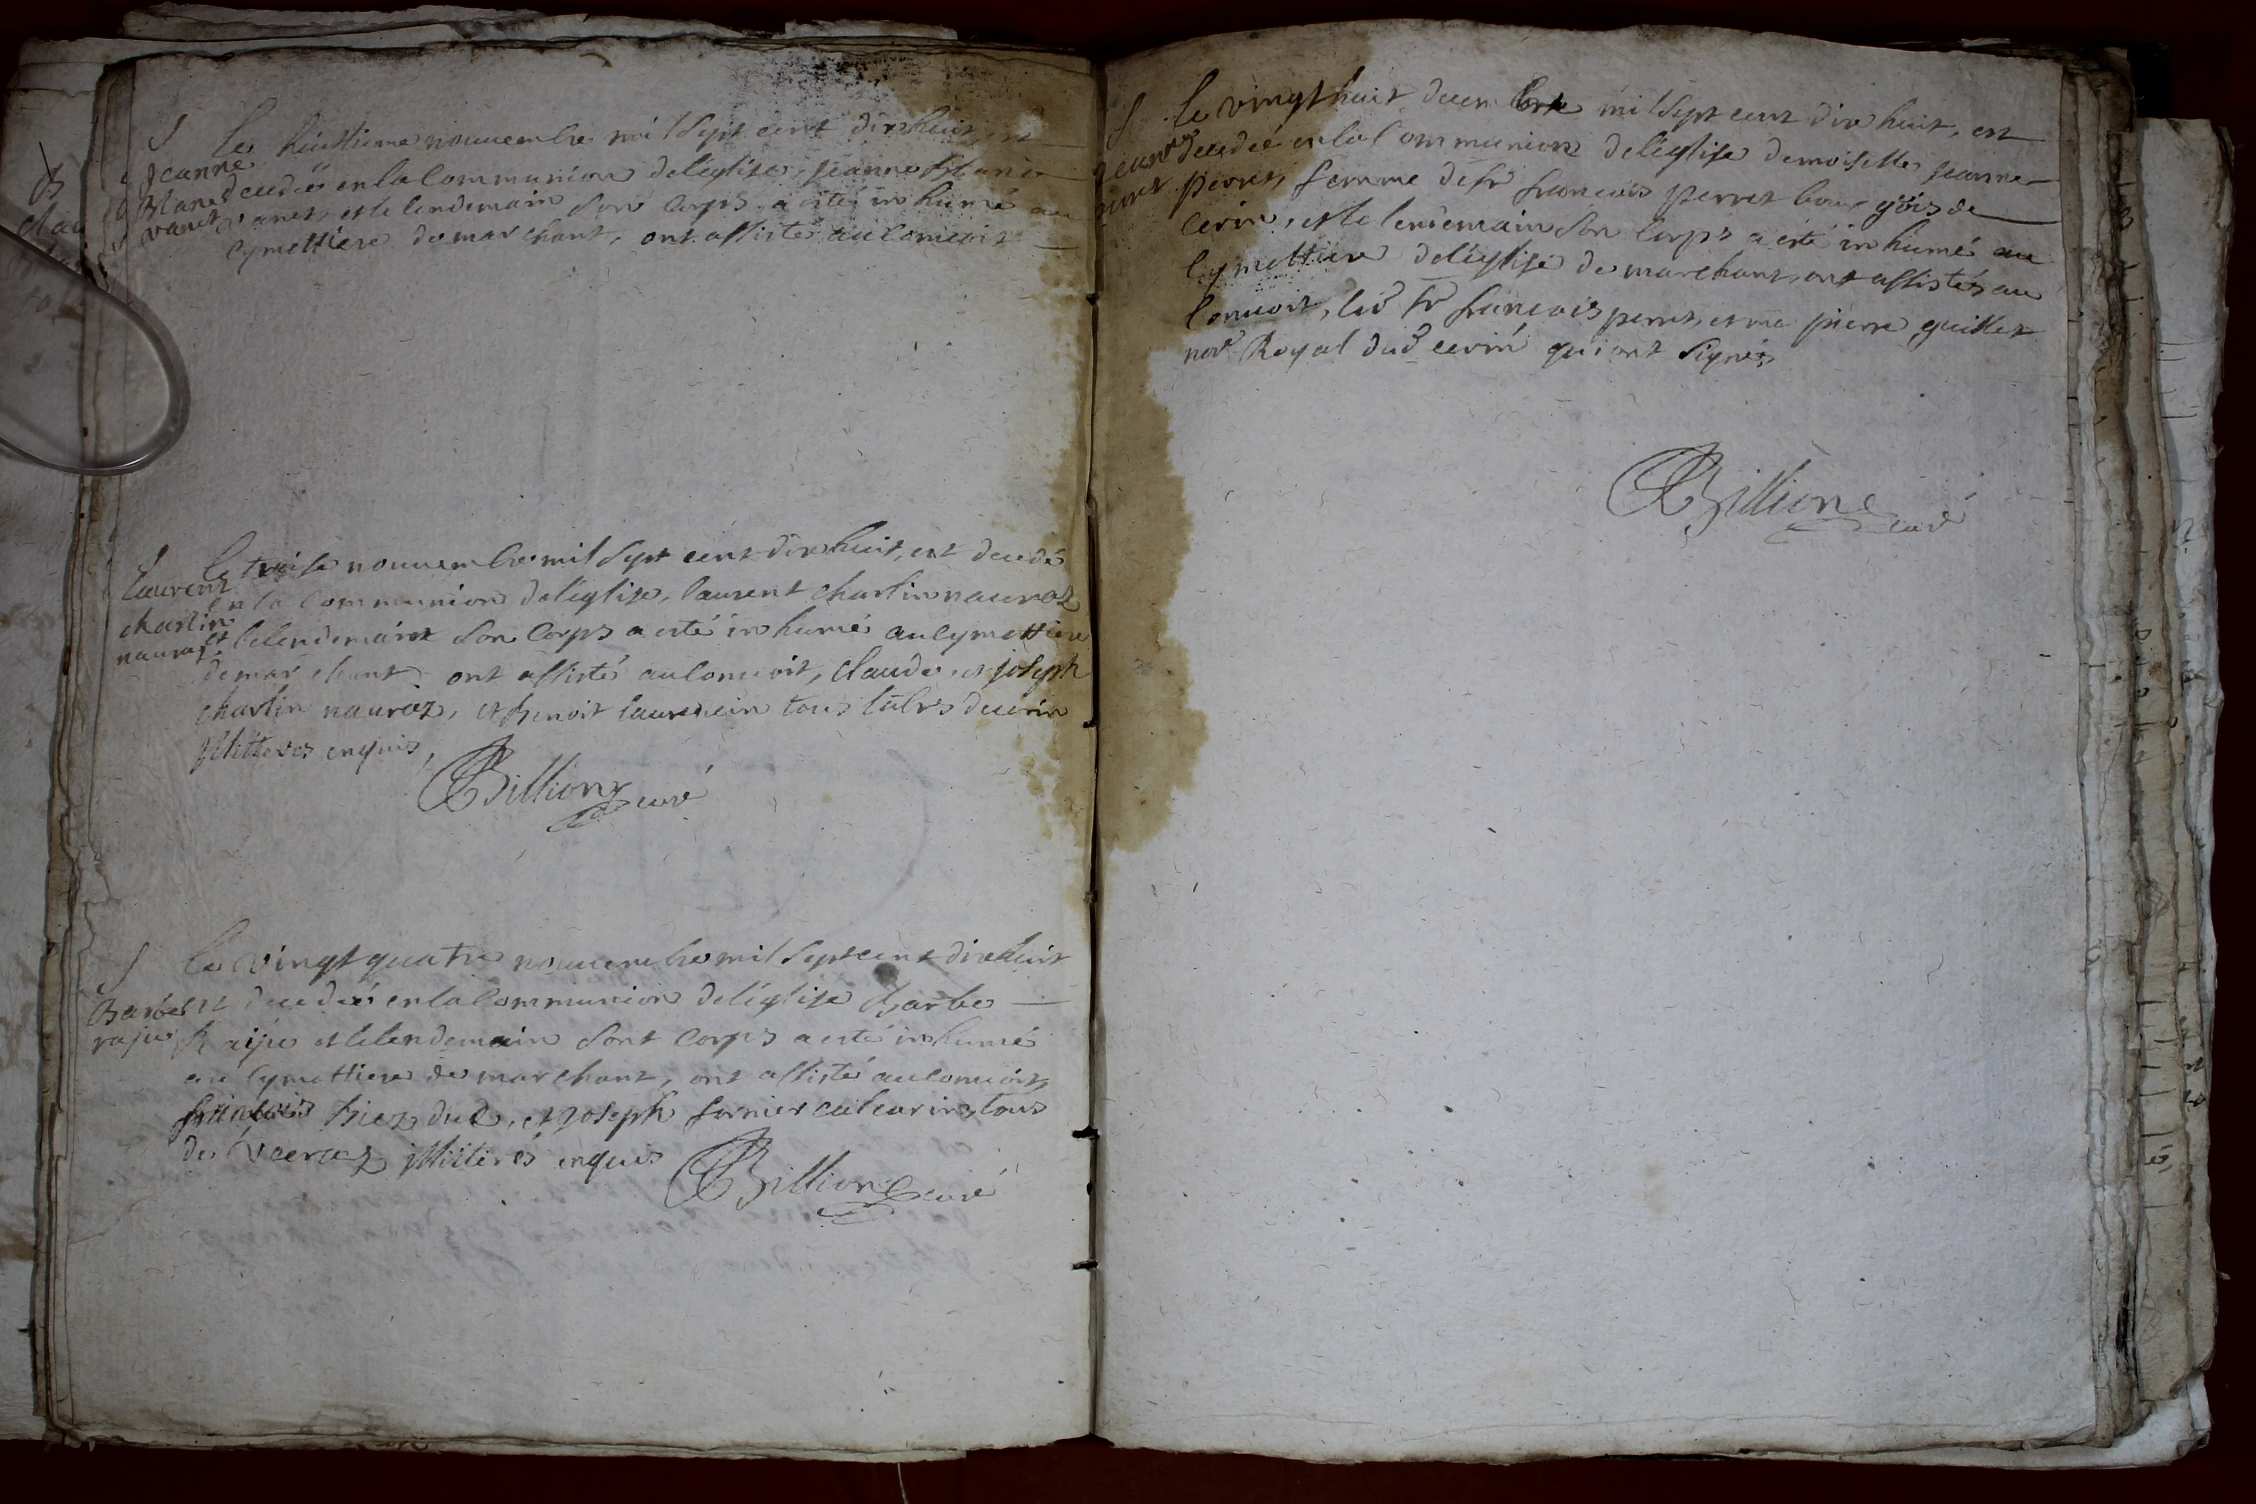 S
Jeanne
Blanc
vanet
Le huittieme nouuembre mil sept cent dix huit est
decedeé en la Communion deleglise, jeanne Blanc
vanet, et le lendemain son Corps a esté inhumé au
cymettiere de marchant, ont assisté au conuoit
Laurent
charlin
nauroz
Le treise nouuembre mil sept cent dix huit, est decedé
en la Communion deleglise, laurent charlin nauroz
et lelendemain son Corps a esté inhumé au cymettiere
de marchant ont assisté au conuoit, claude, et joseph
charlin nauroz, et benoit laurencin tous labrs decerin
jllitteres enquis,
Billion curé
S
Barbe
rajie
Le vingt quatre nouuembre mil sept cent dix huit
est decedeé en la Communion deleglise barbe
Rajie et lelendemain sont Corps a esté inhumé
au Cymettiere de marchant, ont assisté au conuoit,
francois et joseph fornier tous
de jllitterés enquis
Billion curé
S
jeanne
perret
Le vingt huit decembre mil sept cent dix huit, est
decedeé en la Communion deleglise demoiselle jeanne
perret, femme de sr francois perret bourgois de
Cerin, et le lendemain son Corps a esté inhumé au
Cymettiere deleglise de marchant, ont assistés au
Conuoit, led sr francois perret, et me pierre guillet
nore Royal dud cerin qui ont signés
Billion curé